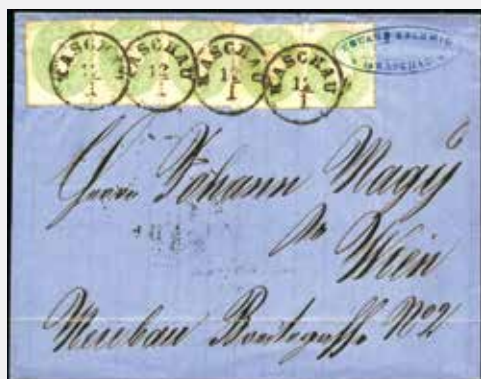 KASCHAU 12 I
KASCHAU 12 I
KASCHAU 12 I
KASCHAU 12 I
KASCHAU
Herrn Johann Nagy
in
Wien
Neubau Breitegasse No 2